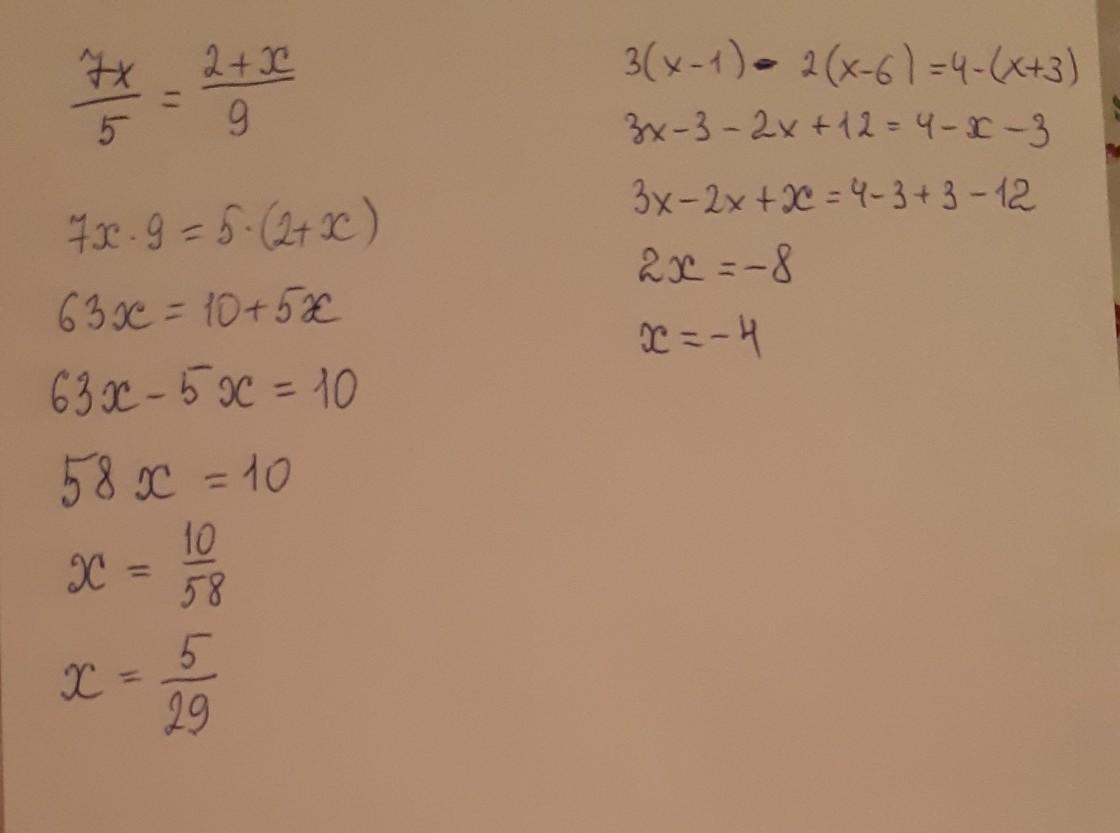 7x/5 = 2+x/9
7x·9 = 5·(2+x)
63x = 10+5x
63x-5x = 10
58x = 10
x = 10/58
x = 5/29
3(x-1)- 2(x-6)=4-(x+3)
3x-3-2x+12=4-x-3
3x-2x+x=4-3+3-12
2x=-8
x=-4